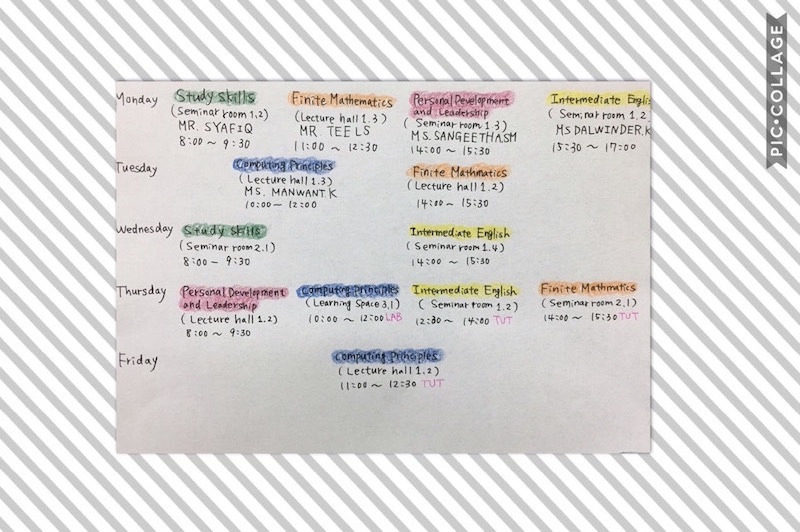 Monday
Study Skills
(Seminar room 1.2)
MR. SYAFIQ
8:00 ~ 9:30
Finite Mathematics
(Lecture hall 1.3)
MR TEELS
11:00 ~ 12:30
Personal Development
and Leadership
(Seminar room 1.3)
MS. SANGEETHASM
14:00 ~ 15:30
Intermediate Englis
(Seminar room 1.2
MS DALWINDER.K
15:30 ~ 17:00
Tuesday
Computing Principles
(Lecture hall 1.3)
MS. MANWANT K
10:00 ~ 12:00
Finite Mathmatics
(Lecture hall 1.2)
14:00 ~ 15:30
Wednesday
Study skills
(Seminar room 2.1)
8:00 ~ 9:30
Intermediate English
(Seminar room 1.4)
14:00 ~ 15:30
Thursday
Personal Development
and Leadership
(Lecture hall 1.2)
8:00 ~ 9:30
Computing Principles
(Learning Space 3.1)
10:00 ~ 12:00 LAB
Intermediate English
(Seminar room 1.2)
12:30 ~ 14:00 TUT
Finite Mathmatics
(Seminar room 2.1)
14:00 ~ 15:30 TUT
Friday
Computing Principles
(Lecture hall 1.2)
11:00 ~ 12:30 TUT
PIC•COLLAGE